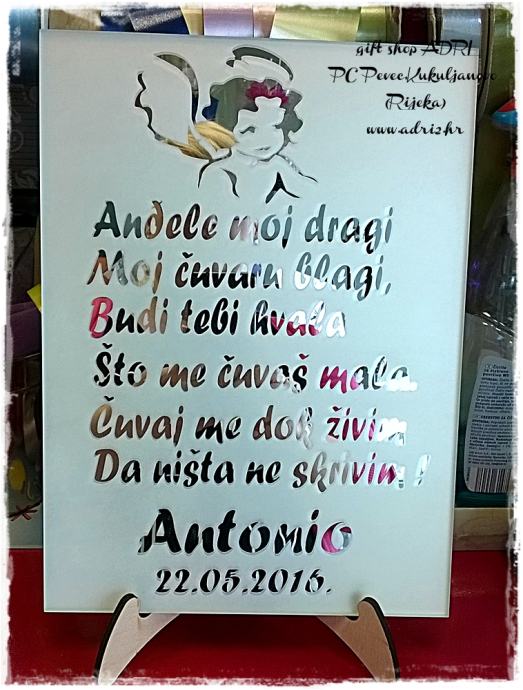 gift shop ADRI
PC Pevec Kukuljanovo
(Rijeka)
www.adri2.hr
Anđele moj dragi
Moj čuvaru blagi,
Budi tebi hvala
Što me čuvaš mala.
Čuvaj me dok živim
Da ništa ne skrivim !
Antonio
22.05.2016.